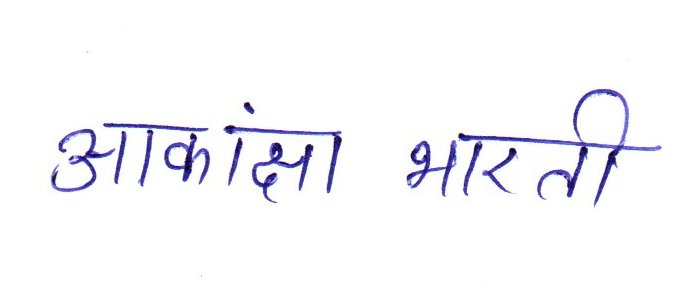 आकांक्षा भारती